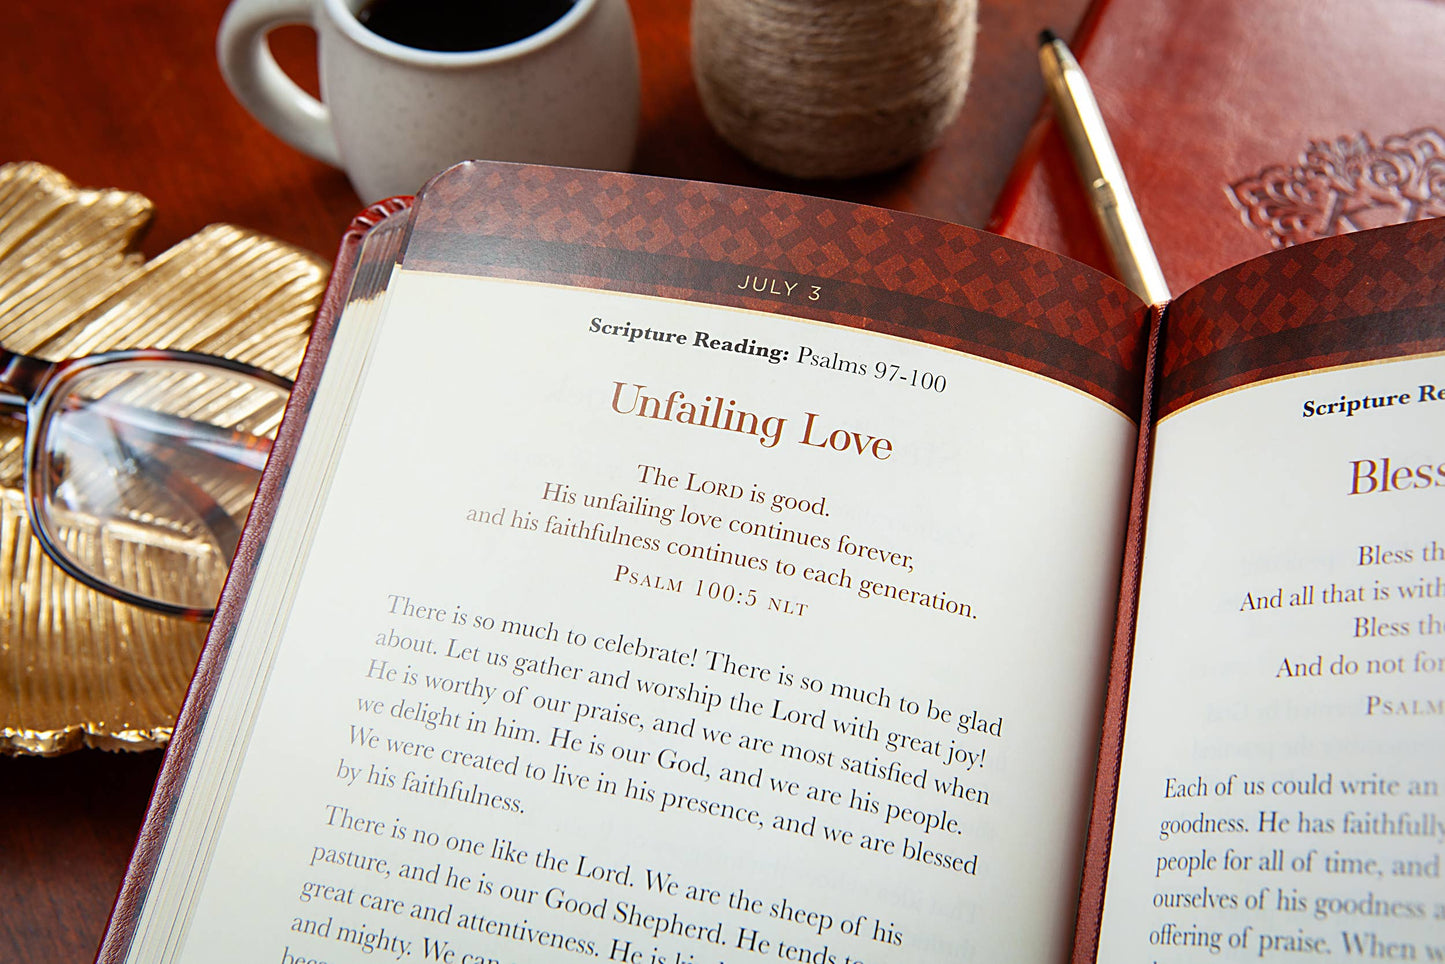 JULY 3
Scripture Reading: Psalms 97-100
Unfailing Love
The LORD is good.
His unfailing love continues forever,
and his faithfulness continues to each generation.
PSALM 100:5 NLT
There is so much to celebrate! There is so much to be glad
about. Let us gather and worship the Lord with great joy!
He is worthy of our praise, and we are most satisfied when
we delight in him. He is our God, and we are his people.
We were created to live in his presence, and we are blessed
by his faithfulness.
There is no one like the Lord. We are the sheep of his
pasture, and he is our Good Shepherd. He tends to
great care and attentiveness. He is
and mighty. We can
Scripture
Bless
Bless
And all that is with
Bless the
And do not for
PSALM
Each of us could write an
goodness. He has faithfully
people for all of time, and
ourselves of his goodness
offering of praise. When